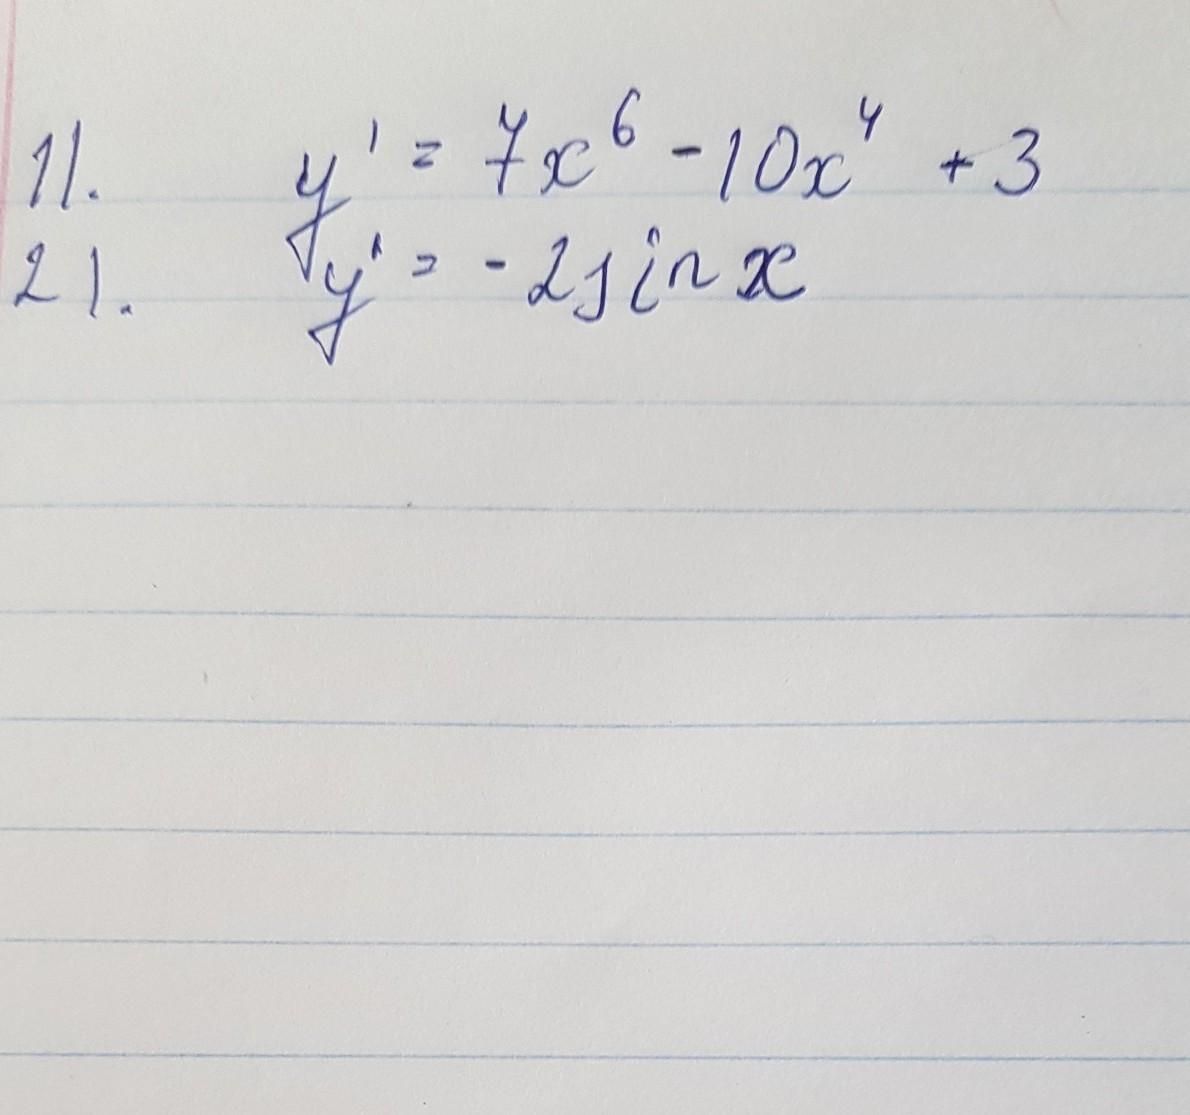 11. y' = 7x⁶ - 10x⁴ + 3
21. y' = -2sin x